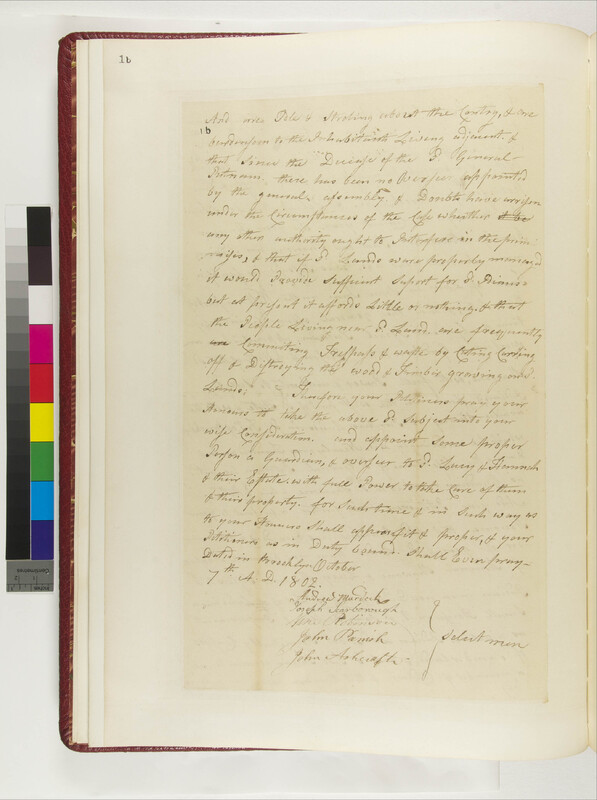 1b
And are Old & Stroling about the Contry, & are
1b
burdensom to the Inhabitants Living adjacent. &
that Sence the Decease of the sd General
Putnam, there has been no Overseer appointed
by the general assembly & Doubts have arrisen
under the Circumstances of the Case wheather to be
any other authority ought to Interfear in the prim
maises, & that if sd Lands ware properly managd
it would Provide Suffient Suport for sd Hannah
but at present it affords Little or nothing. & that
the People Living near sd Land. are frequently
Commiting Trespass & waste by Cuting Carring
off & Distroying the wood & Timber growing on sd
Lands; your Petitioners pray your
Honours to take the above sd Subject into your
wise Consideration. and appoint Some proper
Person a Guardian, & overseer to sd Lucy & Hannah
& their Estate. with full Power to take Care of them
& their property. for Such time & in Such way as
to your Honours Shall appear fit & proper, & your
Petitioners as in Duty bound. Shall Ever pray—
Dated in Brooklyn October
7th A. D. 1802.
Andrew Murdock
Joseph Scarborough
John Parish
John Ashcraft
Select men